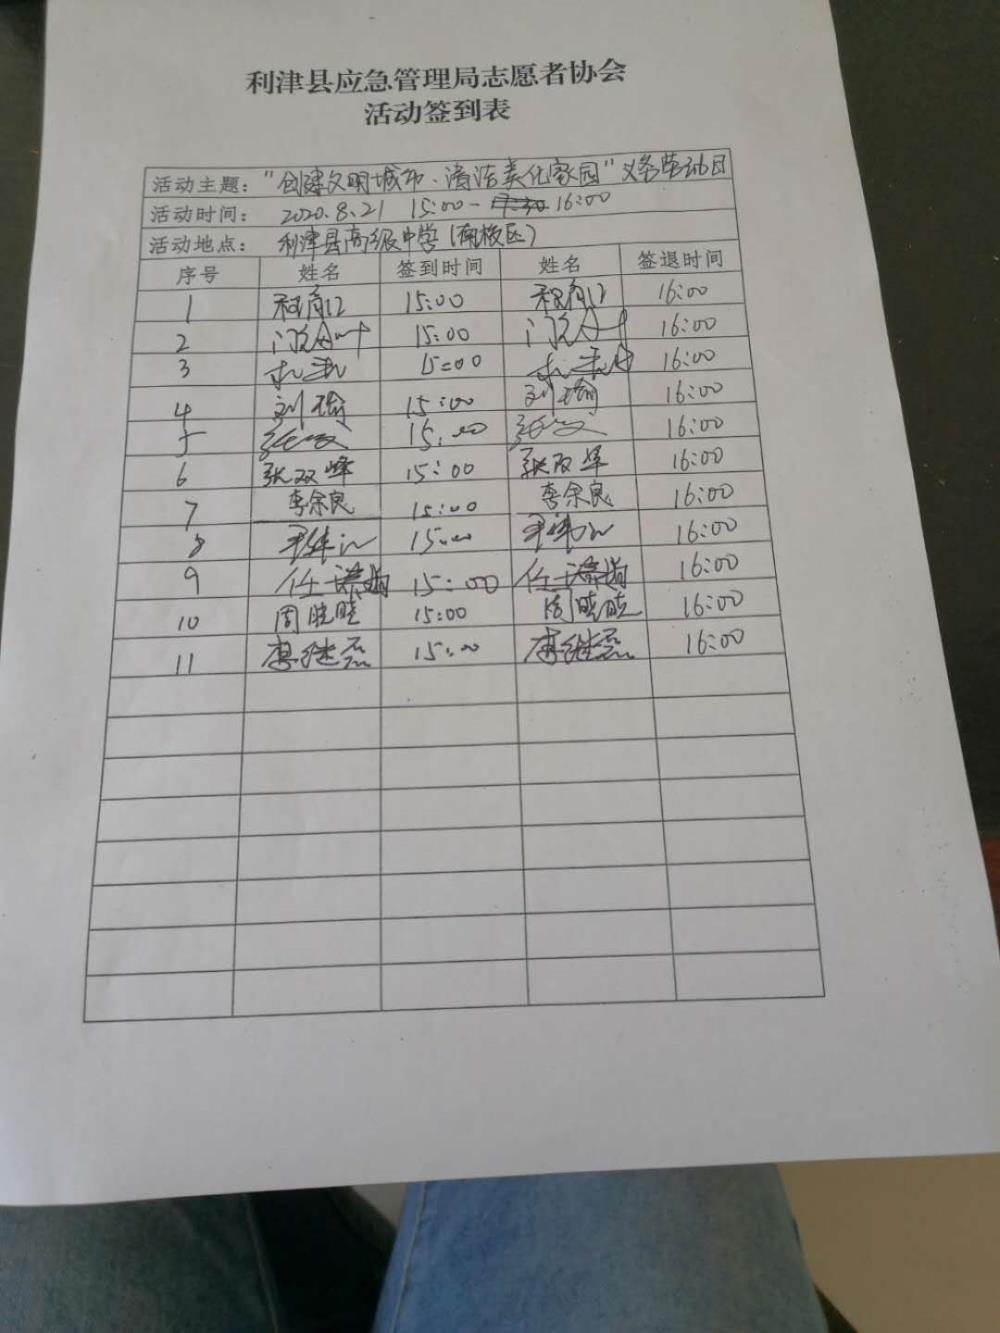 利津县应急管理局志愿者协会
活动签到表
活动主题："创建文明城市·清洁美化家园"义务劳动日
活动时间： 2020.8.21 15:00- 16:00
活动地点： 利津县高级中学(南校区)
序号 姓名 签到时间 姓名 签退时间
1 15:00 16:00
2 15:00 16:00
3 15:00 16:00
4 刘瑜 15:00 刘瑜 16:00
5 15:00 16:00
6 张双峰 15:00 张双峰 16:00
7 李余良 15:00 李余良 16:00
8 15:00 16:00
9 15:00 16:00
10 周晓晓 15:00 周晓晓 16:00
11 15:00 16:00